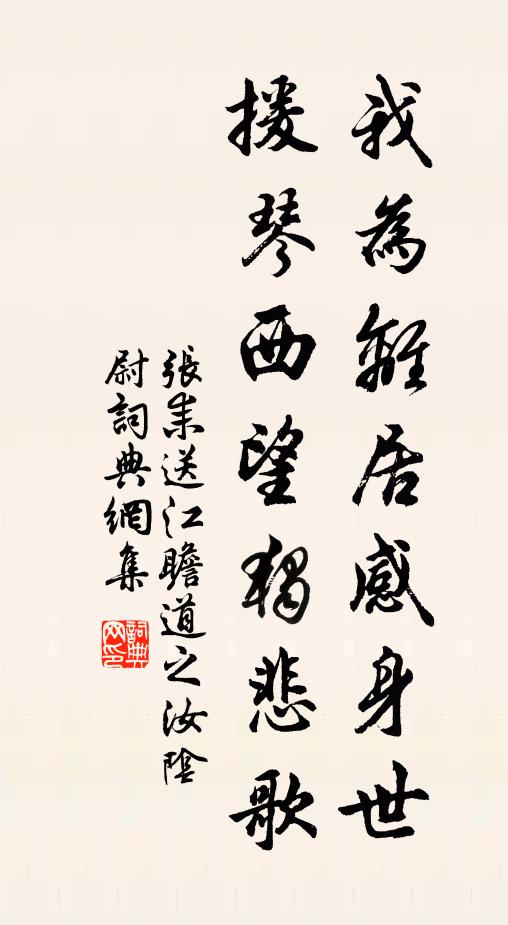 我為離居感身世
援琴西望獨悲歌
張耒送江瞻道之汝陰
尉詞典網集
詞典網印